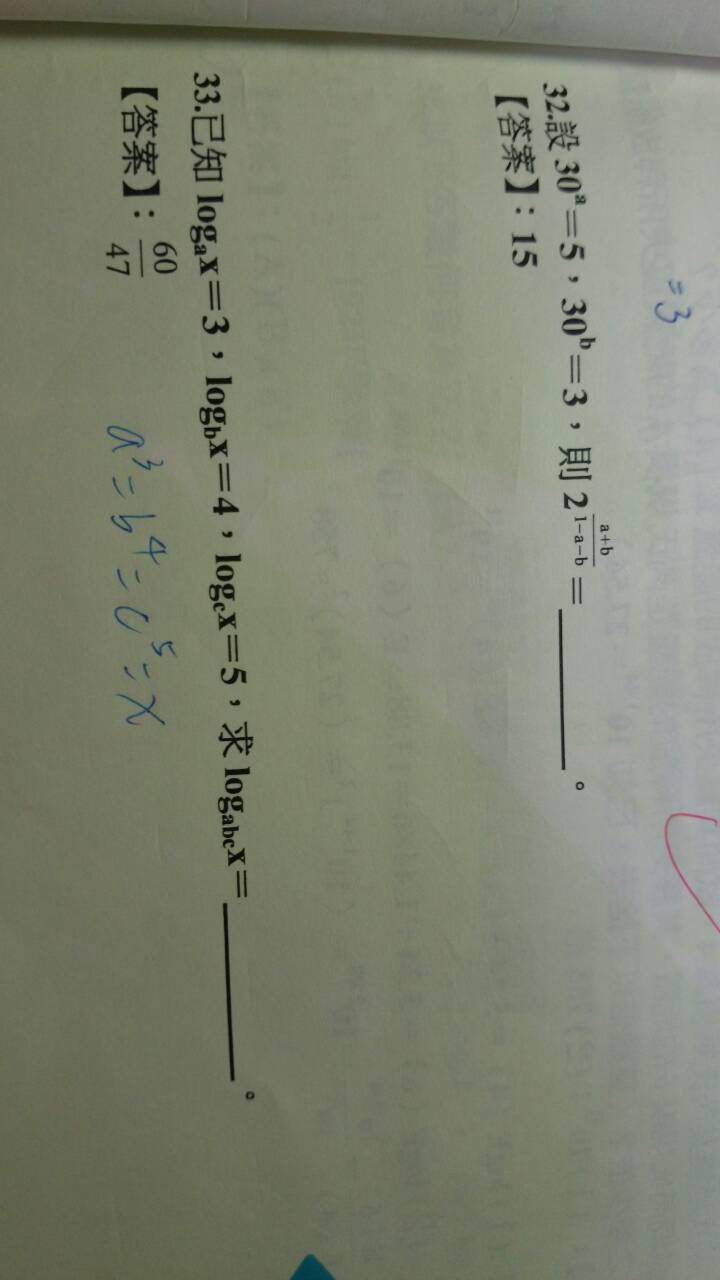 =3
32.設 30ᵃ=5，30ᵇ=3，則 2^((a+b)/(1-a-b))=________。
【答案】：15
33.已知 logₐx=3，log_b x=4，log_c x=5，求 log_abc x=________。
【答案】：60/47
a³=b⁴=c⁵=x